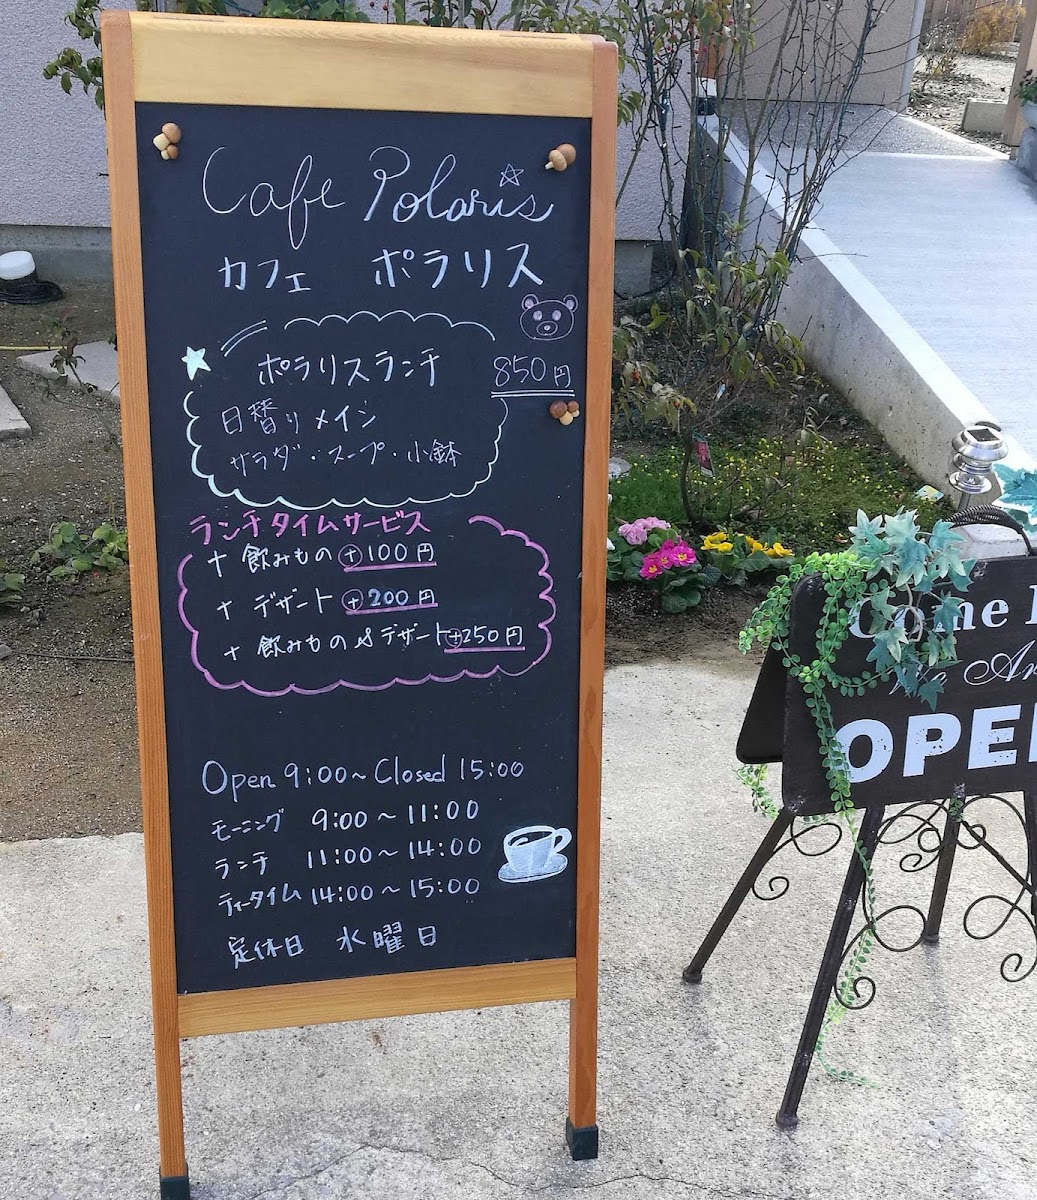 Cafe Polaris
カフェ ポラリス
ポラリスランチ 850円
日替りメイン
サラダ・スープ・小鉢
ランチタイムサービス
+ 飲みもの +100円
+ デザート +200円
+ 飲みもの & デザート +250円
Open 9:00~Closed 15:00
モーニング 9:00~11:00
ランチ 11:00~14:00
ティータイム 14:00~15:00
定休日 水曜日
Come
We Ar
OPE